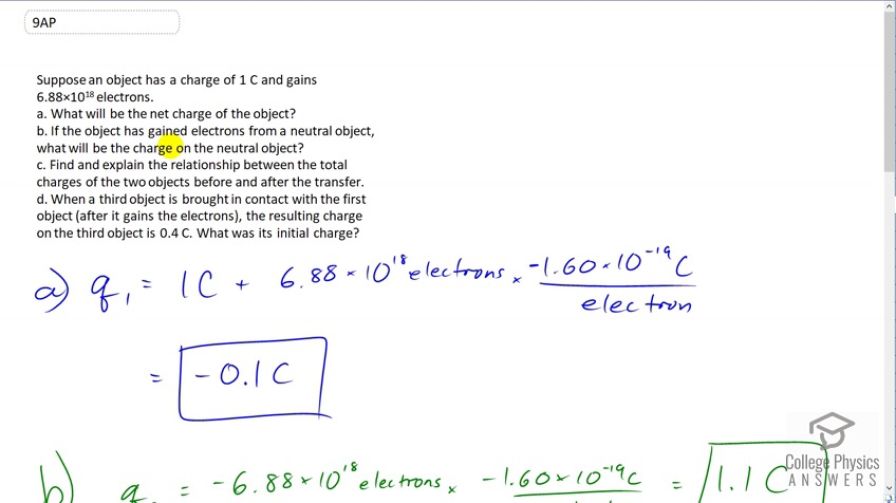 9AP
Suppose an object has a charge of 1 C and gains
6.88×10¹⁸ electrons.
a. What will be the net charge of the object?
b. If the object has gained electrons from a neutral object,
what will be the charge on the neutral object?
c. Find and explain the relationship between the total
charges of the two objects before and after the transfer.
d. When a third object is brought in contact with the first
object (after it gains the electrons), the resulting charge
on the third object is 0.4 C. What was its initial charge?
a) q₁ = 1C + 6.88 × 10¹⁸ electrons × -1.60 × 10⁻¹⁹ C / electron
= -0.1 C
b) q = -6.88 × 10¹⁸ electrons × -1.60 × 10⁻¹⁹ C = 1.1 C
College Physics
ANSWERS